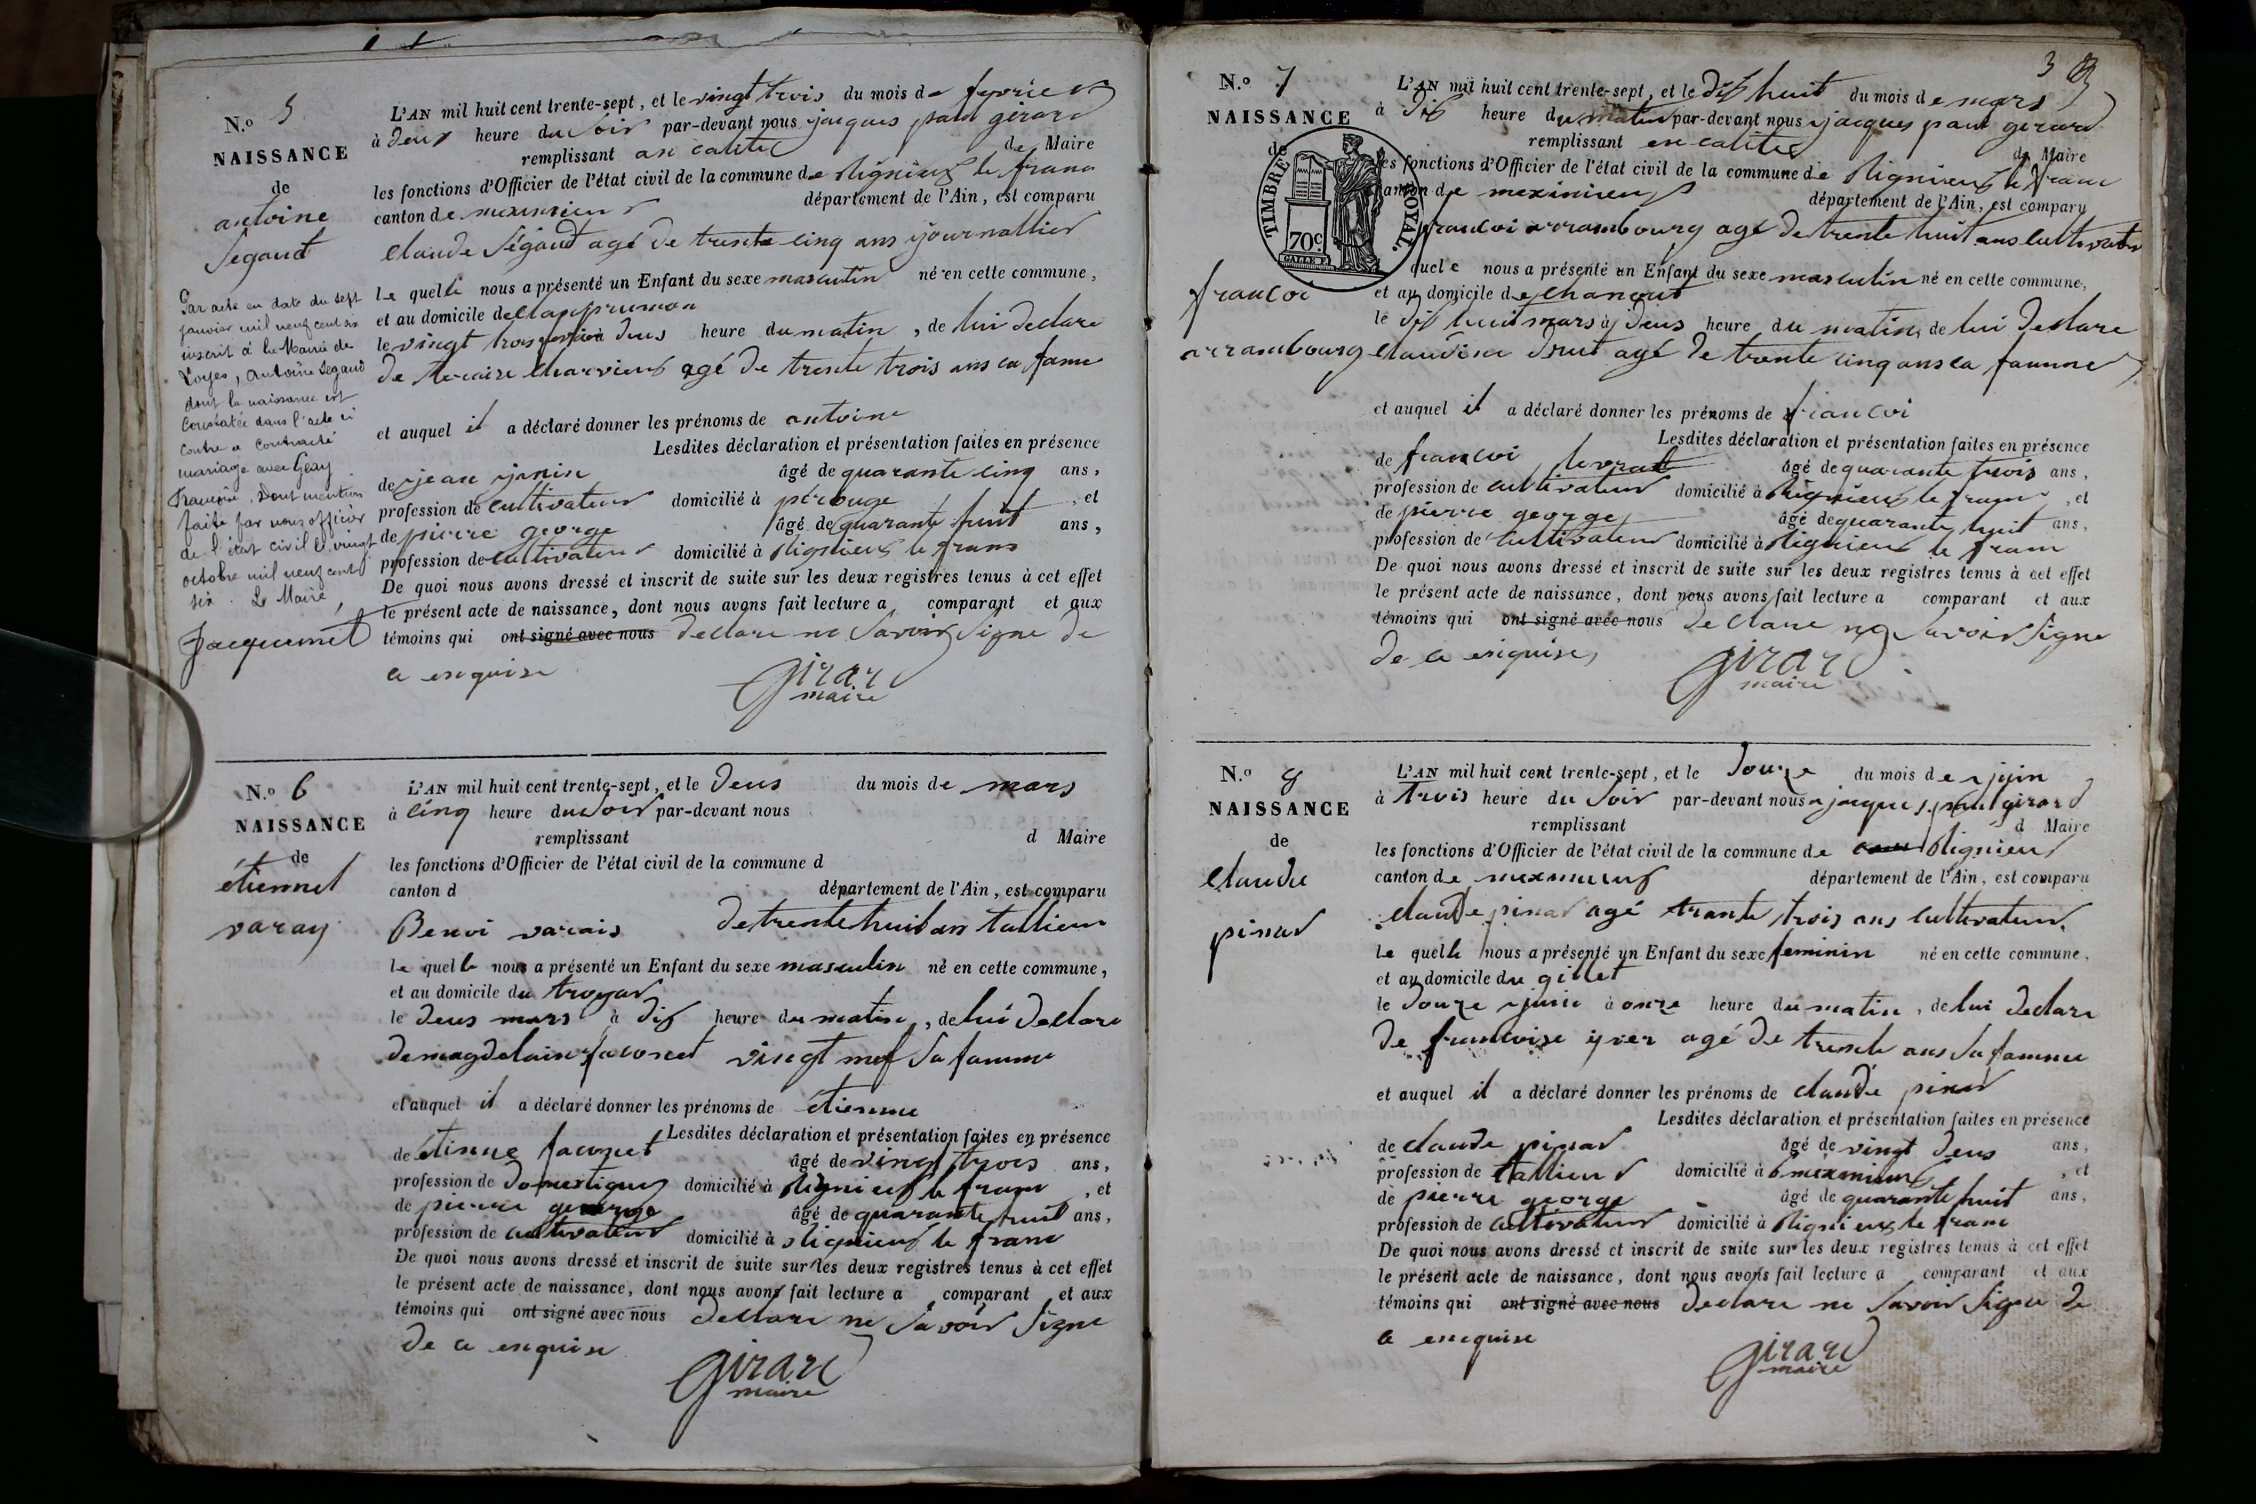 N.o 5
NAISSANCE
de
antoine
Segaud
Par acte en date du sept
janvier mil neuf cent six
inscrit à la Mairie de
Loyes, Antoine Segaud
dont la naissance est
constatée dans l'acte ci
contre a contracté
mariage avec Geay
Francoise. Dont mention
faite par nous officier
de l'état civil le vingt
octobre mil neuf cent
six. Le Maire,
Jacquemet
L'AN mil huit cent trente-sept, et le vingt trois du mois de fevrier
à deux heure du soir par-devant nous jacques paul girard
remplissant en calite de Maire
les fonctions d'Officier de l'état civil de la commune de Rignieux le franc
canton de meximieux département de l'Ain, est comparu
claude Ségaud agé de trente cinq ans journallier
Le quel le nous a présenté un Enfant du sexe masculin né en cette commune,
et au domicile de
le vingt trois fevrier à deus heure du matin, de lui declare
de charvieux agé de trente trois ans sa fame
et auquel il a déclaré donner les prénoms de antoine
Lesdites déclaration et présentation faites en présence
de jean janin âgé de quarante cinq ans,
profession de cultivateur domicilié à pérouge, et
de pierre george âgé de quarante huit ans,
profession de cultivateur domicilié à Rignieux le franc
De quoi nous avons dressé et inscrit de suite sur les deux registres tenus à cet effet
le présent acte de naissance, dont nous avons fait lecture a comparant et aux
témoins qui ont signé avec nous declare ne savoir signe de
ce enquise
girard
maire
N.o 6
NAISSANCE
de
étiennet
varay
L'AN mil huit cent trente-sept, et le deus du mois de mars
à cinq heure du soir par-devant nous
remplissant d Maire
les fonctions d'Officier de l'état civil de la commune d
canton d département de l'Ain, est comparu
Benoi varais de trente huit an tallieur
le quel le nous a présenté un Enfant du sexe masculin né en cette commune,
et au domicile du troyar
le deus mars à dix heure du matin, de lui declare
de magdelaine faconet vingt nef sa famme
et auquel il a déclaré donner les prénoms de étienne
Lesdites déclaration et présentation faites en présence
de étienne faconet âgé de vingt trois ans,
profession de domestique domicilié à Rignieux le franc, et
de pierre george âgé de quarante huit ans,
profession de cultivateur domicilié à Rignieux le franc
De quoi nous avons dressé et inscrit de suite sur les deux registres tenus à cet effet
le présent acte de naissance, dont nous avons fait lecture a comparant et aux
témoins qui ont signé avec nous declare ne savoir signe
de ce enquise
girard
maire
3
N.o 7
NAISSANCE
de
TIMBRE ROYAL.
70c
francoi
arrambourg
L'AN mil huit cent trente-sept, et le dix huit du mois de mars
à dix heure du matin par-devant nous jacques paul gerard
remplissant en calite de Maire
les fonctions d'Officier de l'état civil de la commune de Rignieux le franc
canton de meximieux département de l'Ain, est comparu
francoi arrambourg agé de trente huit ans cultivateur
quel e nous a présenté un Enfant du sexe masculin né en cette commune,
et au domicile de chanout
le dix huit mars à deus heure du matin, de lui declare
claudine drut agé de trente cinq ans sa famme
et auquel il a déclaré donner les prénoms de francoi
Lesdites déclaration et présentation faites en présence
de francoi levrat âgé de quarante trois ans,
profession de cultivateur domicilié à Rignieux le franc, et
de pierre george âgé de quarante huit ans,
profession de cultivateur domicilié à Rignieux le franc
De quoi nous avons dressé et inscrit de suite sur les deux registres tenus à cet effet
le présent acte de naissance, dont nous avons fait lecture a comparant et aux
témoins qui ont signé avec nous declare ne savoir signe
de ce enquise
girard
maire
N.o 8
NAISSANCE
de
Claudie
pinar
L'AN mil huit cent trente-sept, et le douze du mois de juin
à trois heure du soir par-devant nous jacques paul girard
remplissant d Maire
les fonctions d'Officier de l'état civil de la commune de Rignieux
canton de meximieux département de l'Ain, est comparu
claude pinar agé trante trois ans cultivateur
Le quel le nous a présenté un Enfant du sexe feminin né en cette commune,
et au domicile du gillet
le douze juin à onze heure du matin, de lui declare
de francoise yver agé de trente ans sa famme
et auquel il a déclaré donner les prénoms de claudie pinar
Lesdites déclaration et présentation faites en présence
de claude pinar âgé de vingt deus ans,
profession de tallieur domicilié à meximieux, et
de pierre george âgé de quarante huit ans,
profession de cultivateur domicilié à Rignieux le franc
De quoi nous avons dressé et inscrit de suite sur les deux registres tenus à cet effet
le présent acte de naissance, dont nous avons fait lecture a comparant et aux
témoins qui ont signé avec nous declare ne savoir signe de
ce enquise
girard
maire